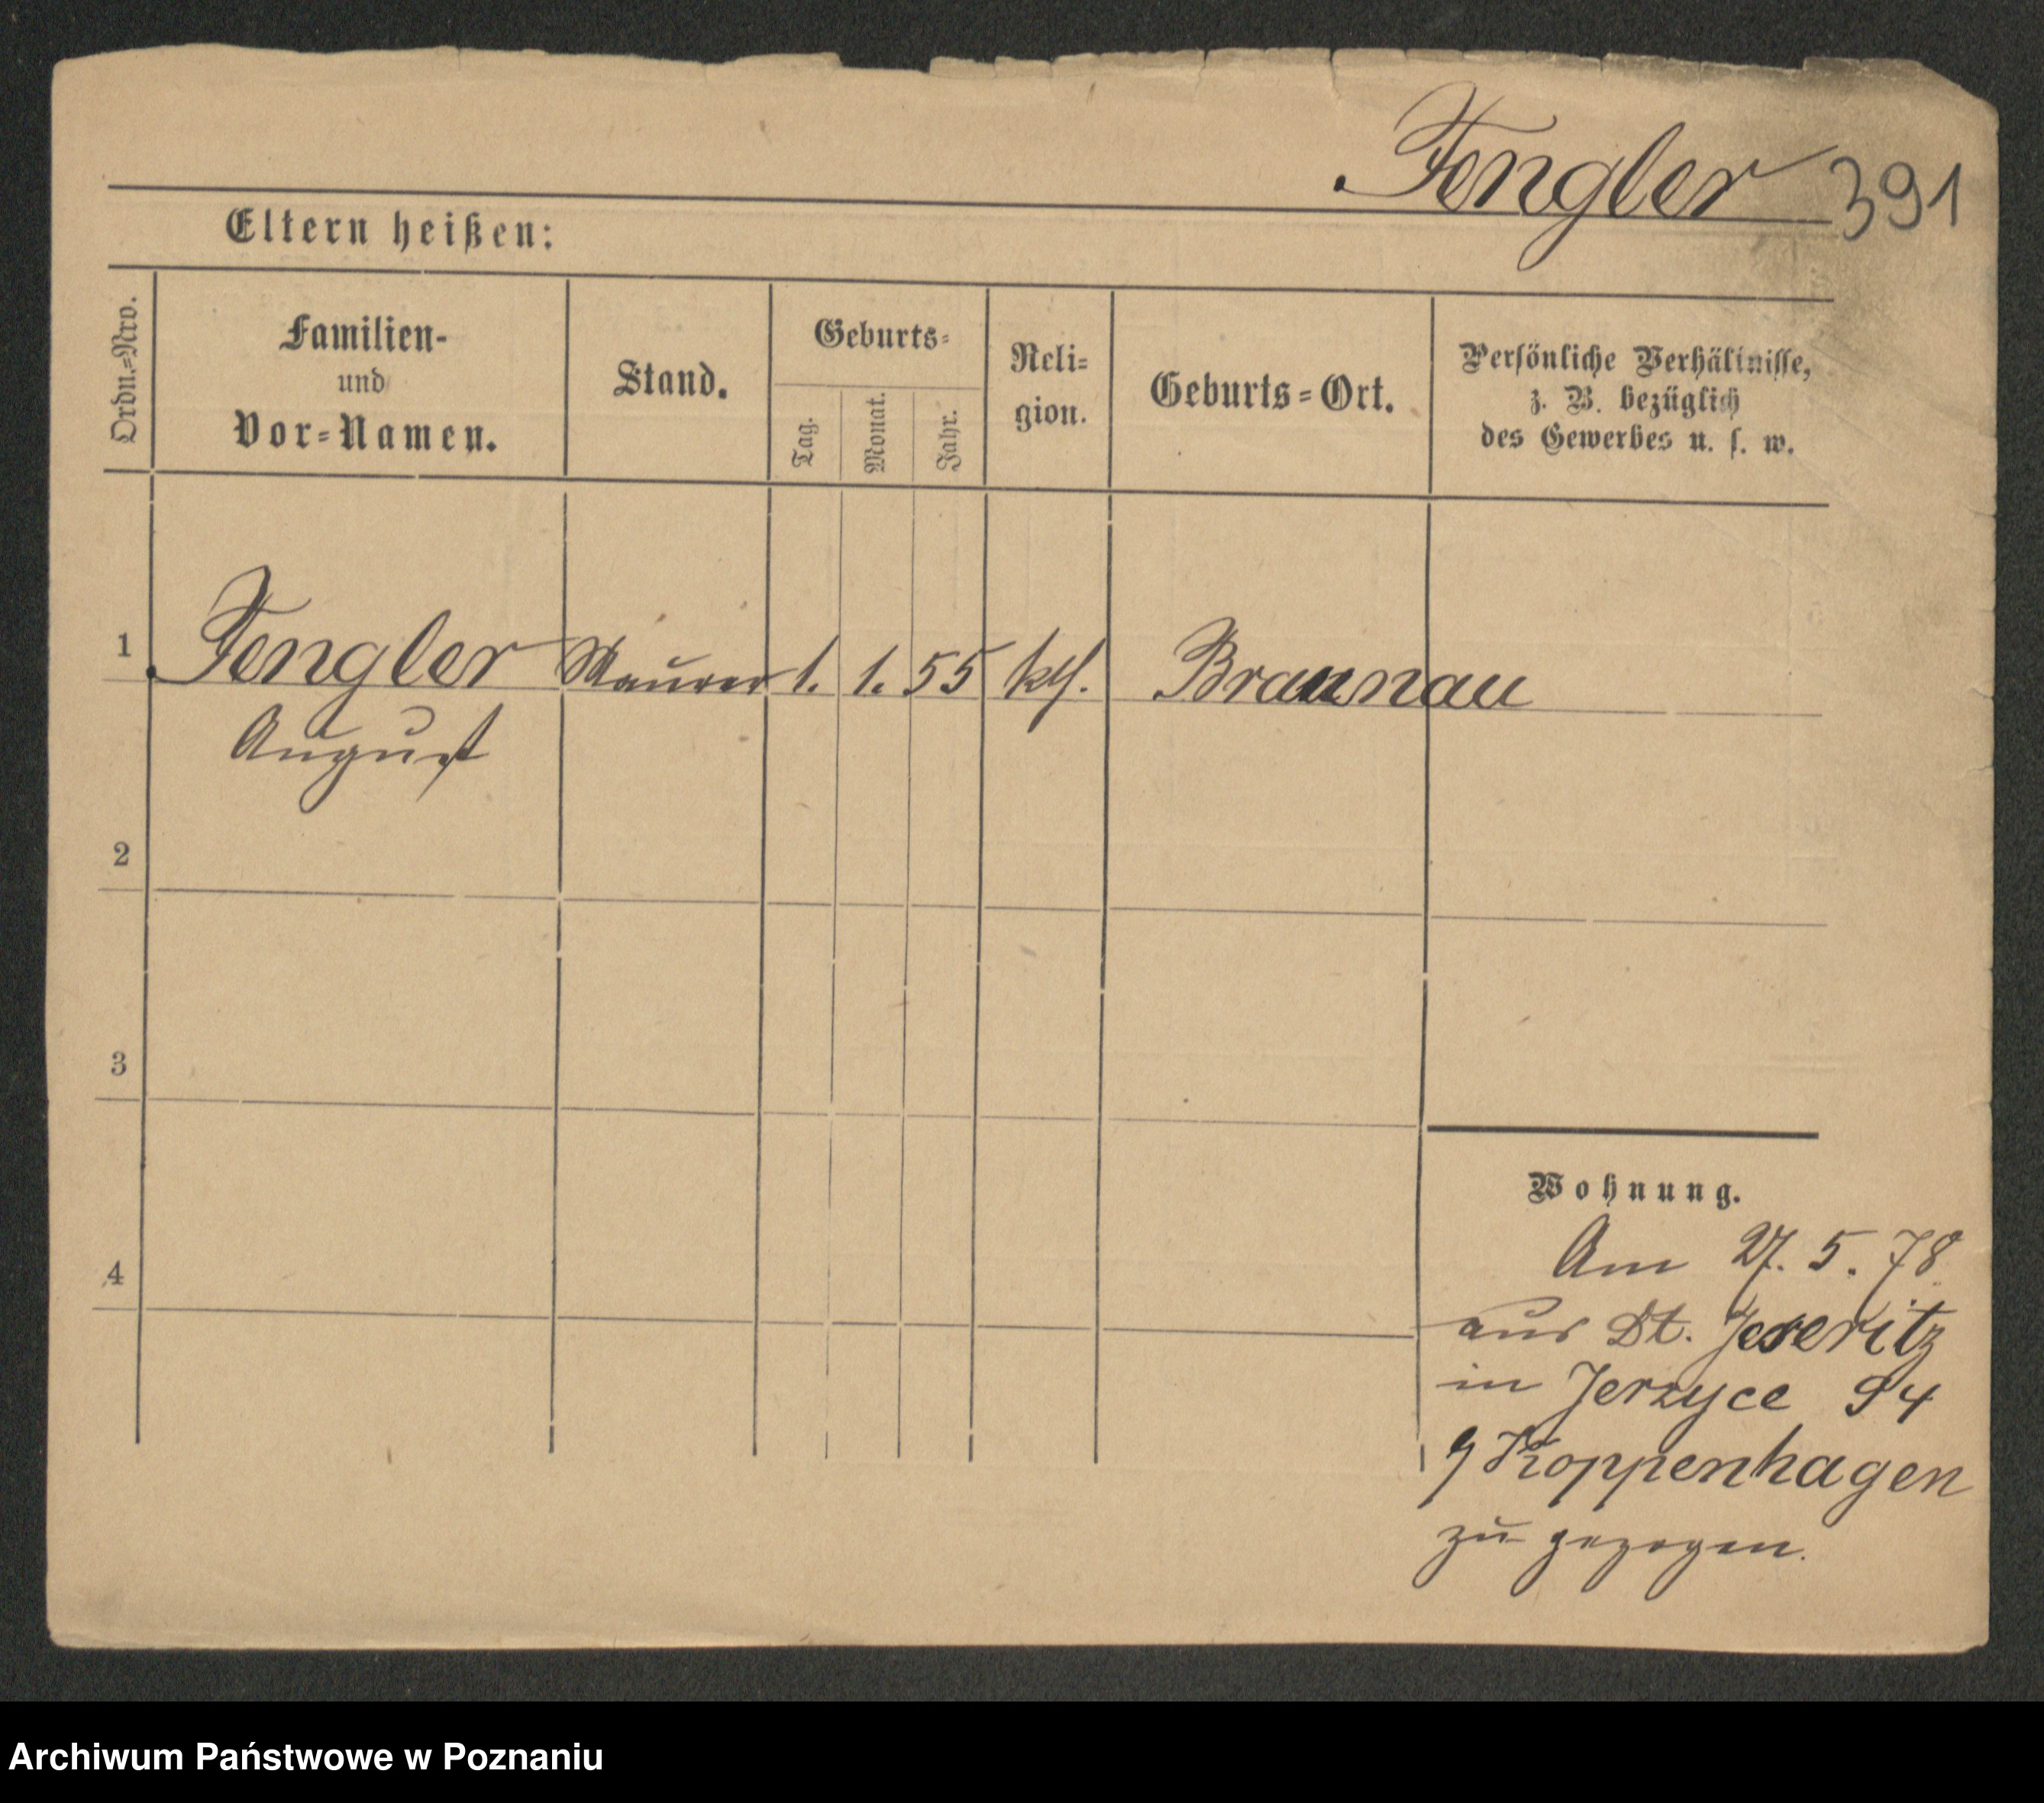 Fengler 391
Eltern heißen:
Ordn.=Nro.
Familien-
und
Vor=Namen.
Stand.
Geburts=
Tag.
Monat.
Jahr.
Reli=
gion.
Geburts=Ort.
Persönliche Verhältnisse,
z. B. bezüglich
des Gewerbes u. s. w.
1 Fengler Maurer 1. 1. 55 kth. Braunau
August
2
3
4
Wohnung.
Am 27. 5. 78
aus Dt. Jeseritz
in Jerzyce 94
Koppenhagen
zu gezogen.
Archiwum Państwowe w Poznaniu